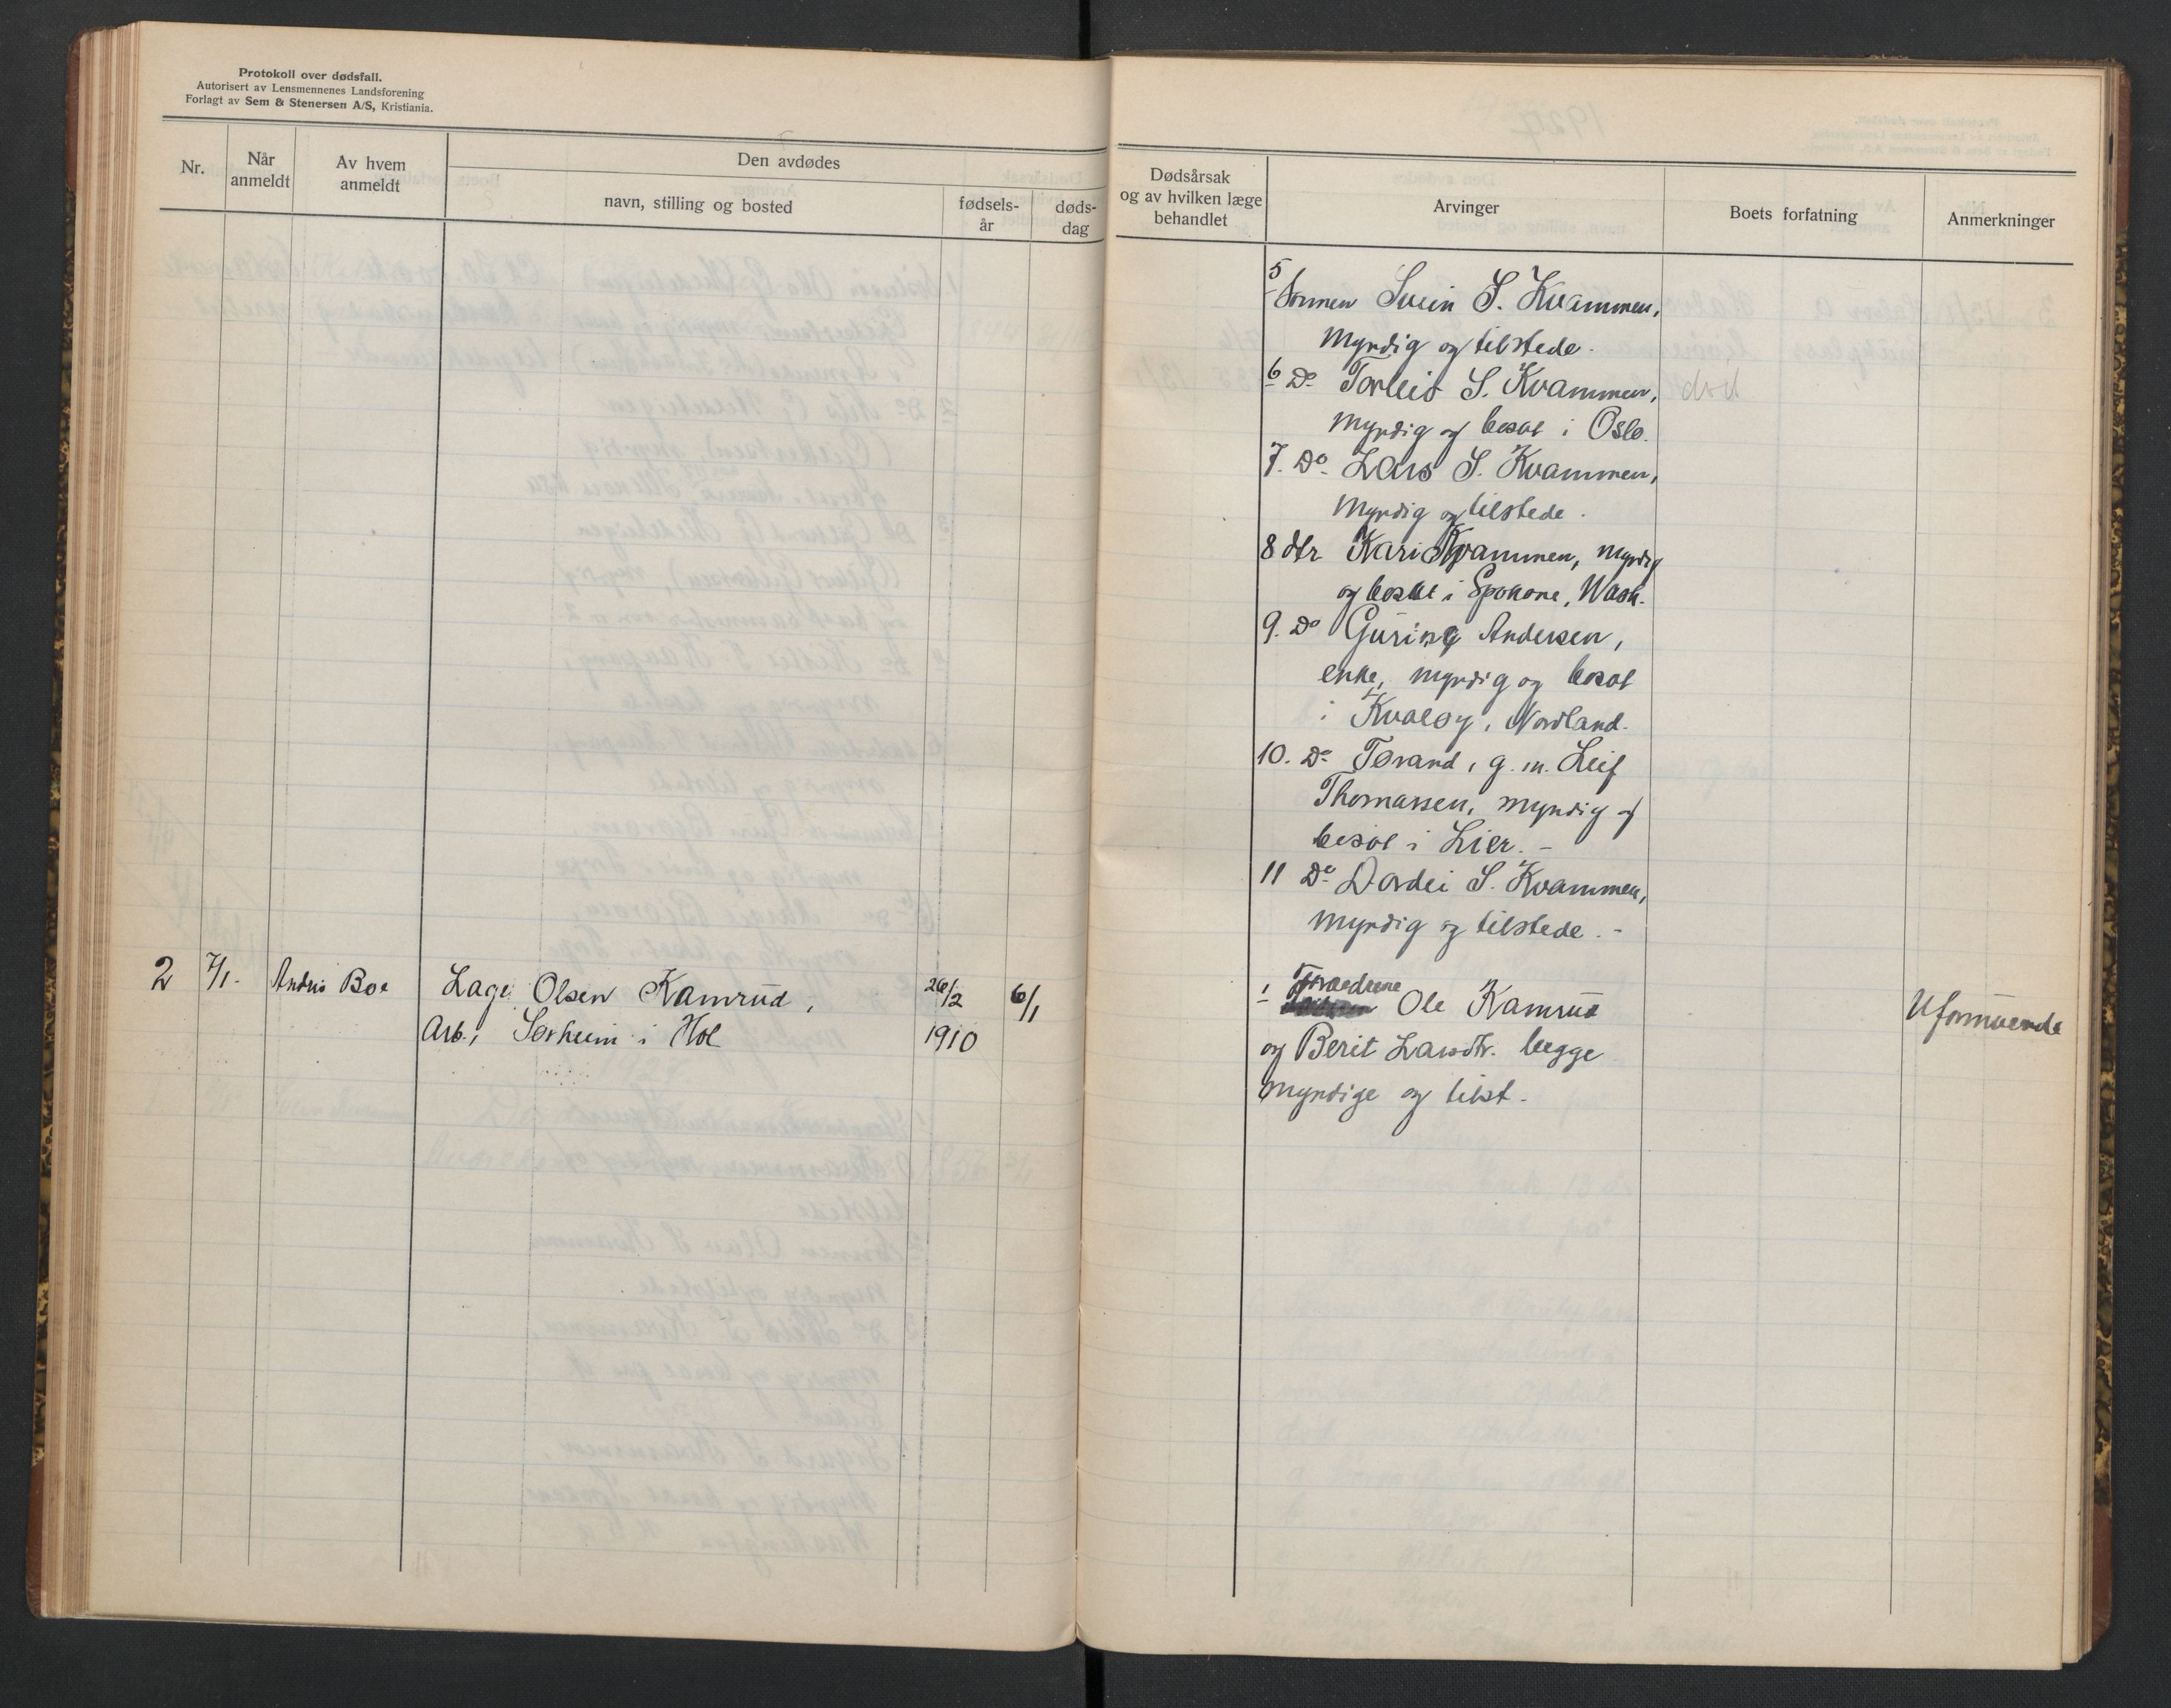 Protokoll over dødsfall.
Autorisert av Lensmennenes Landsforening
Forlagt av Sem & Stenersen A/S, Kristiania.
Nr.
Når anmeldt
Av hvem anmeldt
Den avdødes
navn, stilling og bosted
fødsels-år
døds-dag
Dødsårsak
og av hvilken læge
behandlet
Arvinger
Boets forfatning
Anmerkninger
5
Sønnen Svein S. Kvammen,
myndig og tilstede.
6 Do Torleiv S. Kvammen,
myndig og bosat i Oslo.
7. Do. Lars S. Kvammen,
myndig og tilstede.
8 dtr Kari Kvammen, myndig
og bosat i Spokane, Wash.
9. Do Guring Andersen,
enke, myndig og bosat
i Kvaløy, Nordland.
10. Do Torand, g. m. Leif
Thomassen, myndig og
bosat i Lier. -
11 Do Dordei S. Kvammen,
myndig og tilstede. -
2 7/1. Andris Boe Lage Olsen Kamrud, 26/2 6/1
Arb., Sørheim i Hol 1910
1 Foraeldrene
Ole Kamrud
og Berit Larsdtr. begge
myndige og tilst.
Uformuende